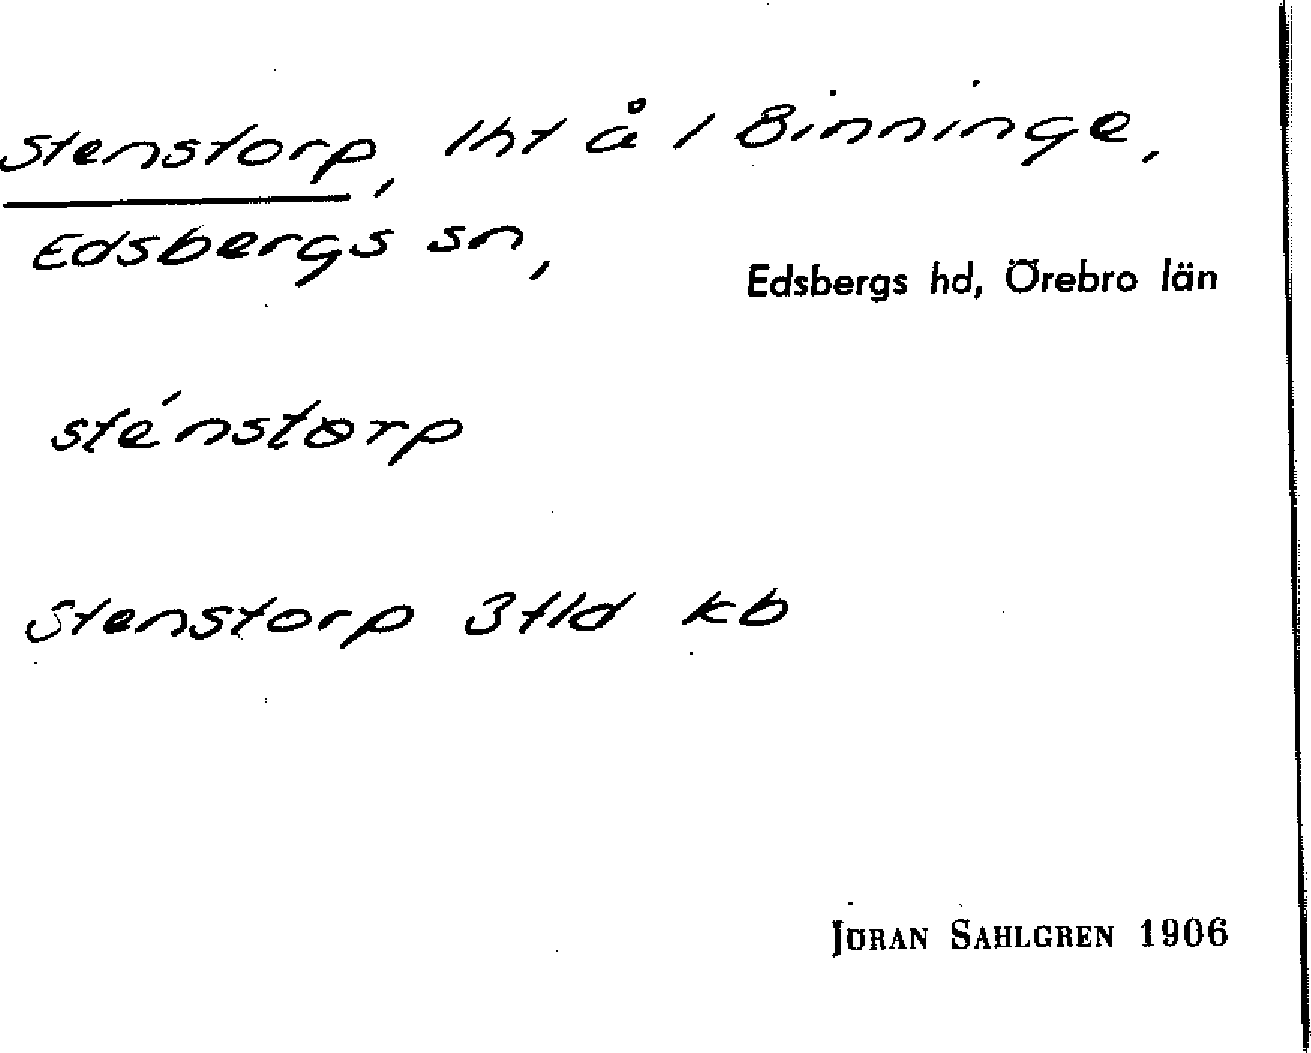 Stenstorp, lht å 1 Binninge,
Edsbergs sn,
Edsbergs hd, Örebro län
sténstorp
Stenstorp 3tld kb
JÖRAN SAHLGREN 1906